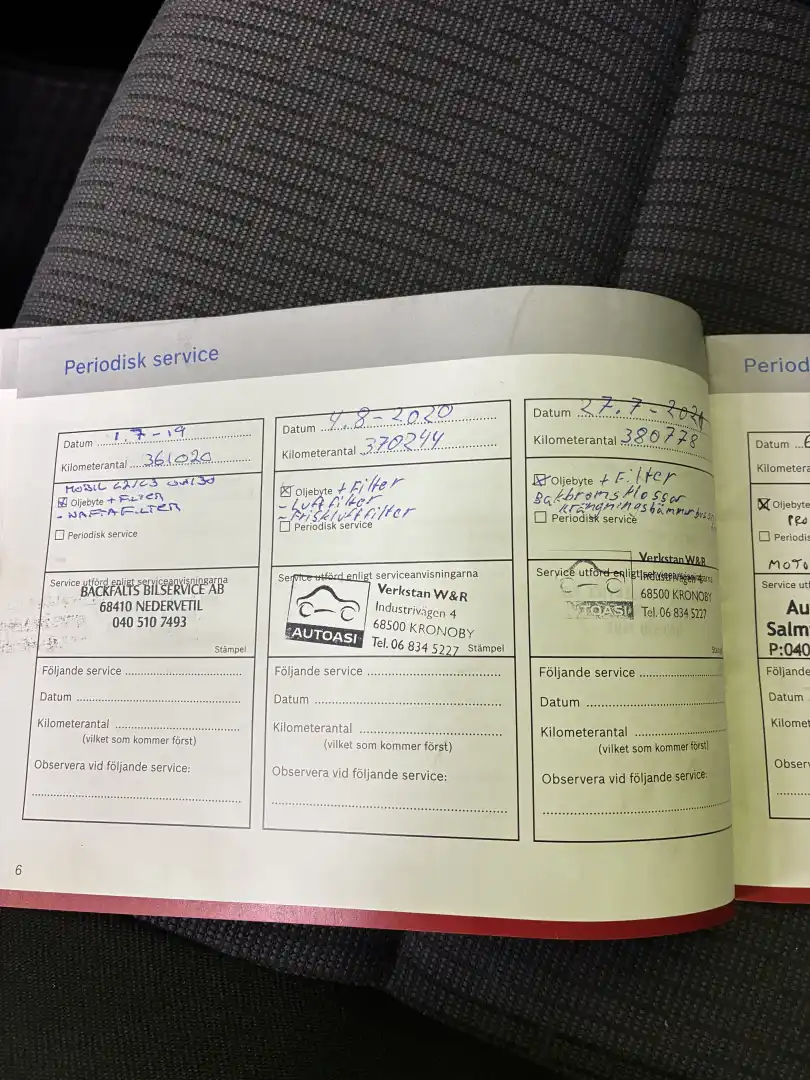 Periodisk service
Datum 1.7-19
Kilometerantal 361020
MOBIL
☒ Oljebyte + FILTER
- NAFTAFILTER
☐ Periodisk service
Service utförd enligt serviceanvisningarna
BACKFALTS BILSERVICE AB
68410 NEDERVETIL
040 510 7493
Stämpel
Följande service
Datum
Kilometerantal
(vilket som kommer först)
Observera vid följande service:
6
Datum 4.8-2020
Kilometerantal 370244
☒ Oljebyte + Filter
- Luftfilter
- Friskluftfilter
☐ Periodisk service
Service utförd enligt serviceanvisningarna
Verkstan W&R
Industrivägen 4
68500 KRONOBY
Tel. 06 834 5227
AUTOASI
Stämpel
Följande service
Datum
Kilometerantal
(vilket som kommer först)
Observera vid följande service:
Datum 27.7-2021
Kilometerantal 380778
☒ Oljebyte + Filter
Bakbromsklossar
☐ Periodisk service
Service utförd enligt serviceanvisningarna
Verkstan W&R
Industrivägen 4
68500 KRONOBY
Tel. 06 834 5227
AUTOASI
Följande service
Datum
Kilometerantal
(vilket som kommer först)
Observera vid följande service:
Period
Datum
Kilometera
☒ Oljebyte
☐ Periodis
MOTO
Service ut
Au
Salm
P:040
Följande
Datum
Kilomet
Observ